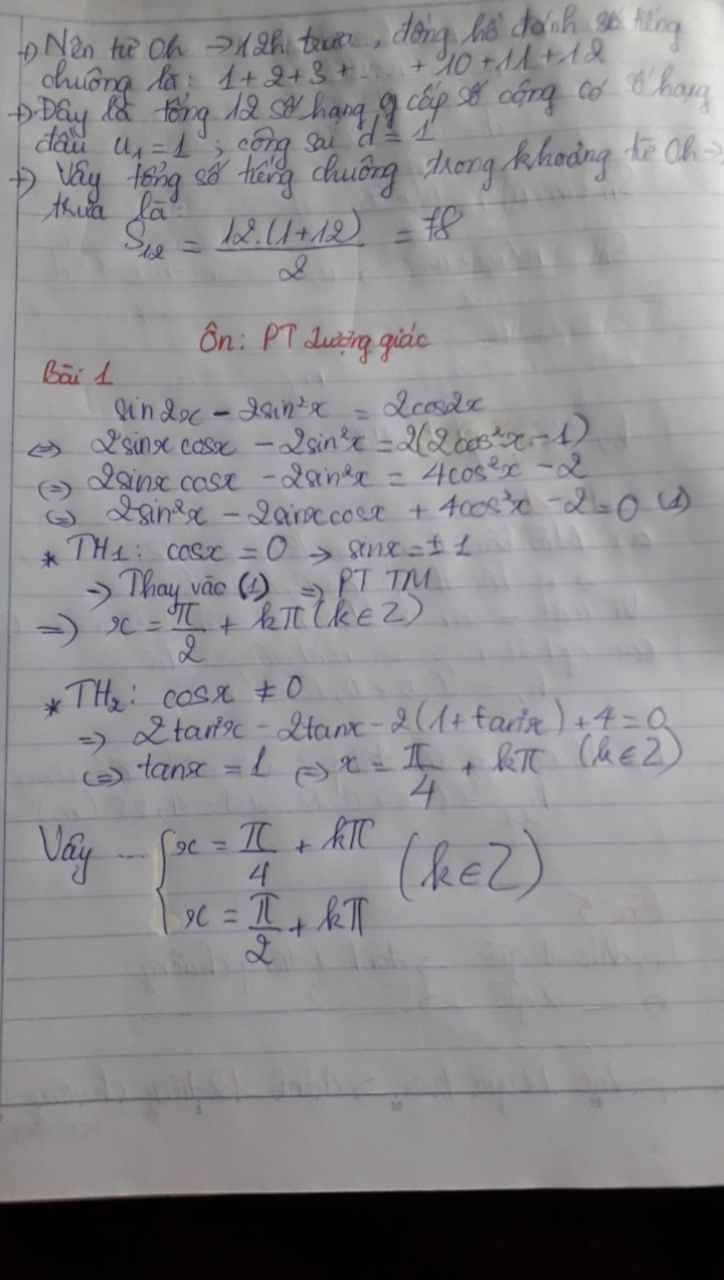 +) Nên từ 0h → 12h trưa, đồng hồ đánh số tiếng
chuông là: 1 + 2 + 3 + ... + 10 + 11 + 12
+) Đây là tổng 12 số hạng cấp số cộng có số hạng
đầu u₁ = 1 ; công sai d = 1
+) Vậy tổng số tiếng chuông trong khoảng từ 0h →
trưa là
S₁₂ = 12.(1+12)/2 = 78
Ôn: PT lượng giác
Bài 1
sin2x - 2sin²x = 2cos2x
⇔ 2sinx cosx - 2sin²x = 2(2cos²x - 1)
⇔ 2sinx cosx - 2sin²x = 4cos²x - 2
⇔ 2sin²x - 2sinx cosx + 4cos²x - 2 = 0 (1)
* TH₁: cosx = 0 → sinx = ±1
→ Thay vào (1) ⇒ PT TM
⇒ x = π/2 + kπ (k ∈ Z)
* TH₂: cosx ≠ 0
⇒ 2tan²x - 2tanx - 2(1 + tan²x) + 4 = 0
⇔ tanx = 1 ⇔ x = π/4 + kπ (k ∈ Z)
Vậy ... { x = π/4 + kπ (k ∈ Z)
x = π/2 + kπ